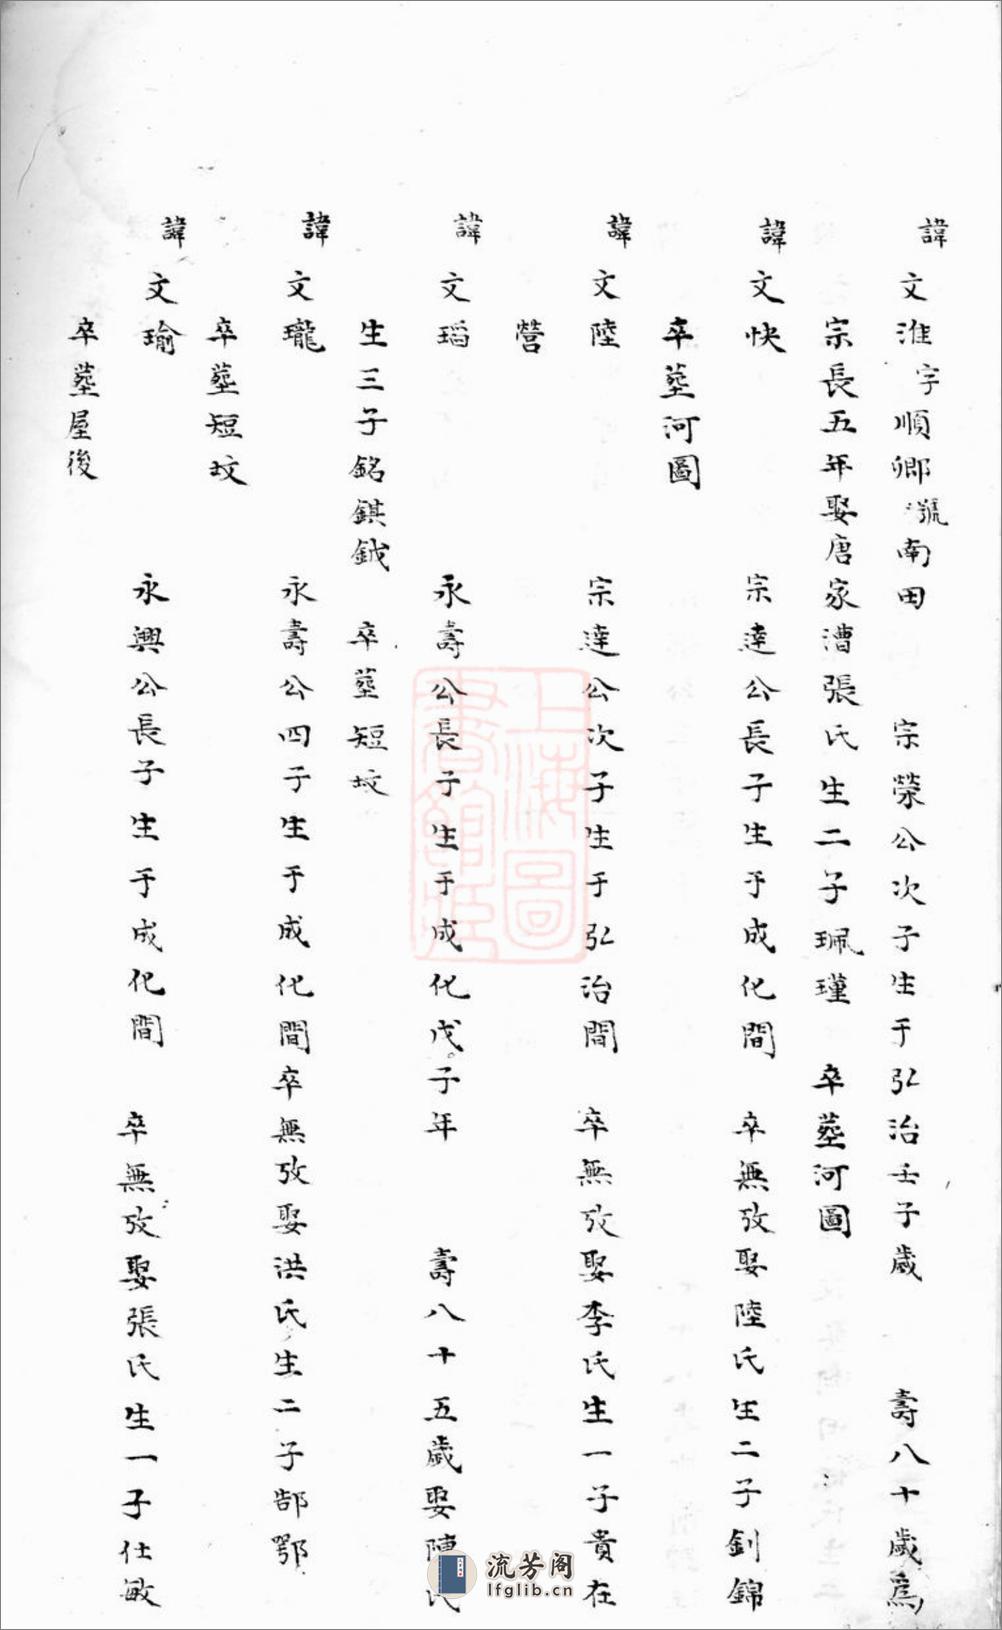 諱文淮字順卿號南田 宗榮公次子生于弘治壬子歲 壽八十歲爲
宗長五年娶唐家漕張氏生二子珮瑾 卒塟河圖
諱文快 宗達公長子生于成化間 卒無攷娶陸氏生二子釗錦
卒塟河圖
諱文陸 宗達公次子生于弘治間 卒無攷娶李氏生一子貴在
營
諱文瑫 永壽公長子生于成化戊子年 壽八十五歲娶陳氏
生三子銘錤鉞 卒塟短坟
諱文瓏 永壽公四子生于成化間卒無攷娶洪氏生二子郜鄂
卒塟短坟
諱文瑜 永興公長子生于成化間 卒無攷娶張氏生一子仕敏
卒塟屋後
上海圖
書館藏
流芳阁
lfglib.cn